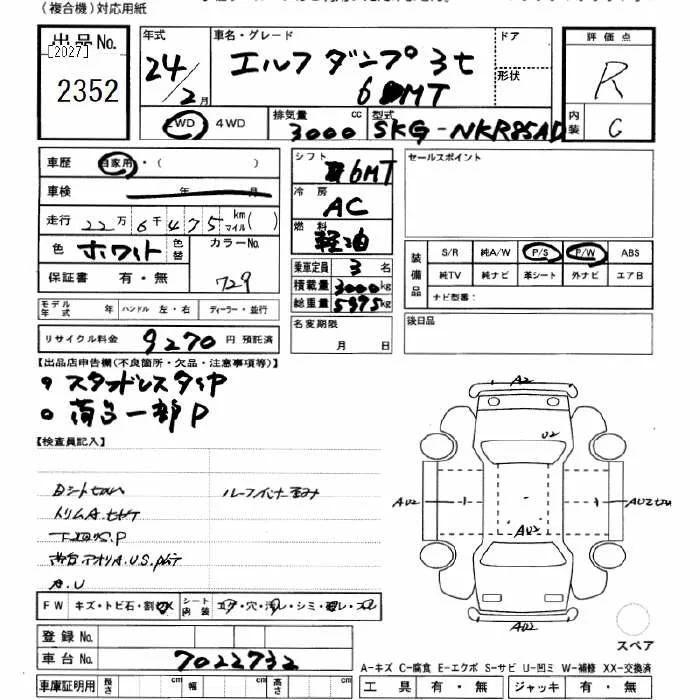 (複合機)対応用紙
出品No.
[2027]
2352
年式
24/2月
車名・グレード
エルフダンプ 3t
6MT
ドア
形状
評価点
R
内装
C
2WD・4WD
排気量
3000cc
型式
SKG-NKR85AD
車歴 自家用・( )
車検 年 月
走行 22万6千475 km マイル( )
色 ホワイト 色替
カラーNo.
729
保証書 有・無
シフト
6MT
冷房
AC
燃料
軽油
乗車定員 3名
積載量 3000kg
総重量 5975kg
名変期限
月 日
セールスポイント
装備品
S/R 純A/W P/S P/W ABS
純TV 純ナビ 革シート 外ナビ エアB
ナビ型番:
後日品
モデル年式 年 ハンドル 左・右 ディーラー・並行
リサイクル料金 9270円 預託済
【出品店申告欄(不良箇所・欠品・注意事項等)】
スタッドレスタイヤ
荷台一部P
【検査員記入】
トリムA.
A.U
FW キズ・トビ石・割 シート内装 ・穴・・シミ・
登録No.
車台No. 7022732
車庫証明用 長さ cm 幅 cm 高さ cm
A2
U2
AU2
AU2
AU2
AU2
スペア
A-キズ C-腐食 E-エクボ S-サビ U-凹ミ W-補修 XX-交換済
工具 有・無 ジャッキ 有・無